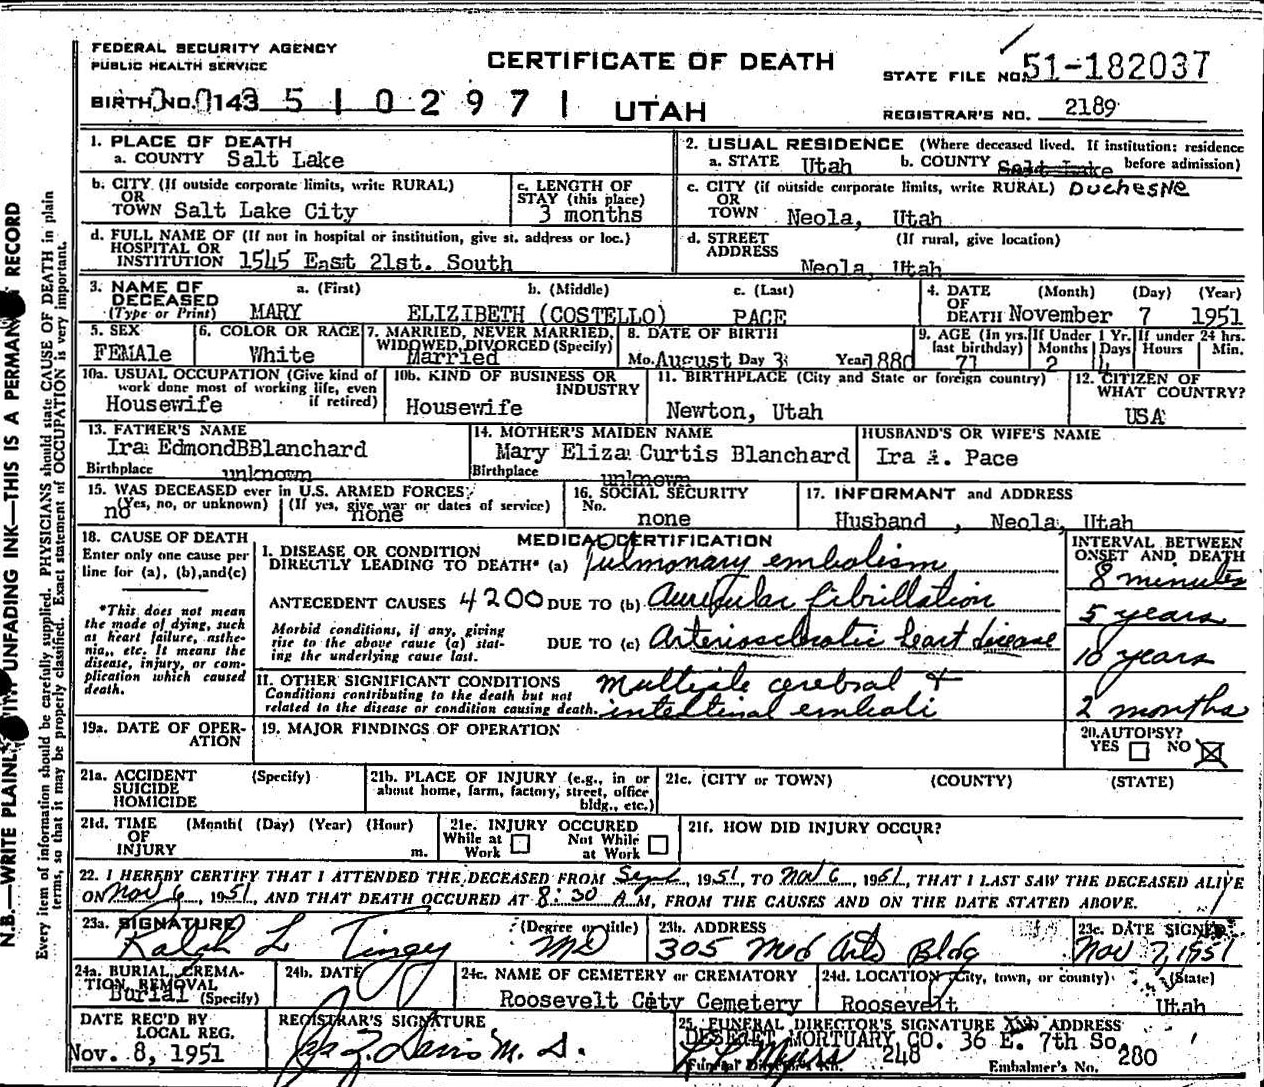 FEDERAL SECURITY AGENCY
PUBLIC HEALTH SERVICE
CERTIFICATE OF DEATH
STATE FILE NO. 51-182037
BIRTH NO. 143 5 1 0 2 9 7 1 UTAH
REGISTRAR'S NO. 2189
1. PLACE OF DEATH
a. COUNTY Salt Lake
2. USUAL RESIDENCE (Where deceased lived. If institution: residence before admission)
a. STATE Utah b. COUNTY Salt Lake
Duchesne
b. CITY (If outside corporate limits, write RURAL)
OR
TOWN Salt Lake City
c. LENGTH OF
STAY (this place)
3 months
c. CITY (if outside corporate limits, write RURAL)
OR
TOWN Neola, Utah
d. FULL NAME OF (If not in hospital or institution, give st. address or loc.)
HOSPITAL OR
INSTITUTION 1545 East 21st. South
d. STREET (If rural, give location)
ADDRESS
Neola, Utah
3. NAME OF
DECEASED
(Type or Print)
a. (First) b. (Middle) c. (Last)
MARY ELIZIBETH (COSTELLO) PACE
4. DATE (Month) (Day) (Year)
OF
DEATH November 7 1951
5. SEX
FEMAle
6. COLOR OR RACE
White
7. MARRIED, NEVER MARRIED,
WIDOWED, DIVORCED (Specify)
Married
8. DATE OF BIRTH
Mo. August Day 3 Year 1880
9. AGE (In yrs. last birthday)
71
If Under 1 Yr.
Months Days
2 4
If under 24 hrs.
Hours Min.
10a. USUAL OCCUPATION (Give kind of
work done most of working life, even
if retired)
Housewife
10b. KIND OF BUSINESS OR
INDUSTRY
Housewife
11. BIRTHPLACE (City and State or foreign country)
Newton, Utah
12. CITIZEN OF
WHAT COUNTRY?
USA
13. FATHER'S NAME
Ira EdmondBBlanchard
Birthplace unknown
14. MOTHER'S MAIDEN NAME
Mary Eliza Curtis Blanchard
Birthplace unknown
HUSBAND'S OR WIFE'S NAME
Ira A. Pace
15. WAS DECEASED ever in U.S. ARMED FORCES?
(Yes, no, or unknown) (If yes, give war or dates of service)
no none
16. SOCIAL SECURITY
No.
none
17. INFORMANT and ADDRESS
Husband , Neola, Utah
18. CAUSE OF DEATH
Enter only one cause per
line for (a), (b), and (c)
*This does not mean
the mode of dying, such
as heart failure, asthe-
nia, etc. It means the
disease, injury, or com-
plication which caused
death.
MEDICAL CERTIFICATION
INTERVAL BETWEEN
ONSET AND DEATH
I. DISEASE OR CONDITION
DIRECTLY LEADING TO DEATH* (a) Pulmonary embolism
8 minutes
ANTECEDENT CAUSES 4200 DUE TO (b) Auricular fibrillation
5 years
Morbid conditions, if any, giving
rise to the above cause (a) stat-
ing the underlying cause last.
DUE TO (c) Arteriosclerotic heart disease
10 years
II. OTHER SIGNIFICANT CONDITIONS
Conditions contributing to the death but not
related to the disease or condition causing death.
Multiple cerebral +
intestinal emboli
2 months
19a. DATE OF OPER-
ATION
19. MAJOR FINDINGS OF OPERATION
20. AUTOPSY?
YES NO
21a. ACCIDENT (Specify)
SUICIDE
HOMICIDE
21b. PLACE OF INJURY (e.g., in or
about home, farm, factory, street, office
bldg., etc.)
21c. (CITY or TOWN) (COUNTY) (STATE)
21d. TIME (Month( (Day) (Year) (Hour)
OF
INJURY m.
21e. INJURY OCCURED
While at Not While
Work at Work
21f. HOW DID INJURY OCCUR?
22. I HEREBY CERTIFY THAT I ATTENDED THE DECEASED FROM Sept, 1951, TO Nov 6, 1951, THAT I LAST SAW THE DECEASED ALIVE
ON Nov 6, 1951, AND THAT DEATH OCCURED AT 8:30 A.M, FROM THE CAUSES AND ON THE DATE STATED ABOVE.
23a. SIGNATURE (Degree or title)
Ralph L Tingey MD
23b. ADDRESS
305 Med Arts Bldg
23c. DATE SIGNED
Nov 7, 1951
24a. BURIAL, CREMA-
TION, REMOVAL
Burial (Specify)
24b. DATE
24c. NAME OF CEMETERY or CREMATORY
Roosevelt City Cemetery
24d. LOCATION (City, town, or county) (State)
Roosevelt Utah
DATE REC'D BY
LOCAL REG.
Nov. 8, 1951
REGISTRAR'S SIGNATURE
Davis M.D.
25. FUNERAL DIRECTOR'S SIGNATURE AND ADDRESS
DESERET MORTUARY CO. 36 E. 7th So.
Funeral Director's No. 248
Embalmer's No. 280
N.B.—WRITE PLAINLY WITH UNFADING INK—THIS IS A PERMANENT RECORD
Every item of information should be carefully supplied. PHYSICIANS should state CAUSE OF DEATH in plain
terms, so that it may be properly classified. Exact statement of OCCUPATION is very important.